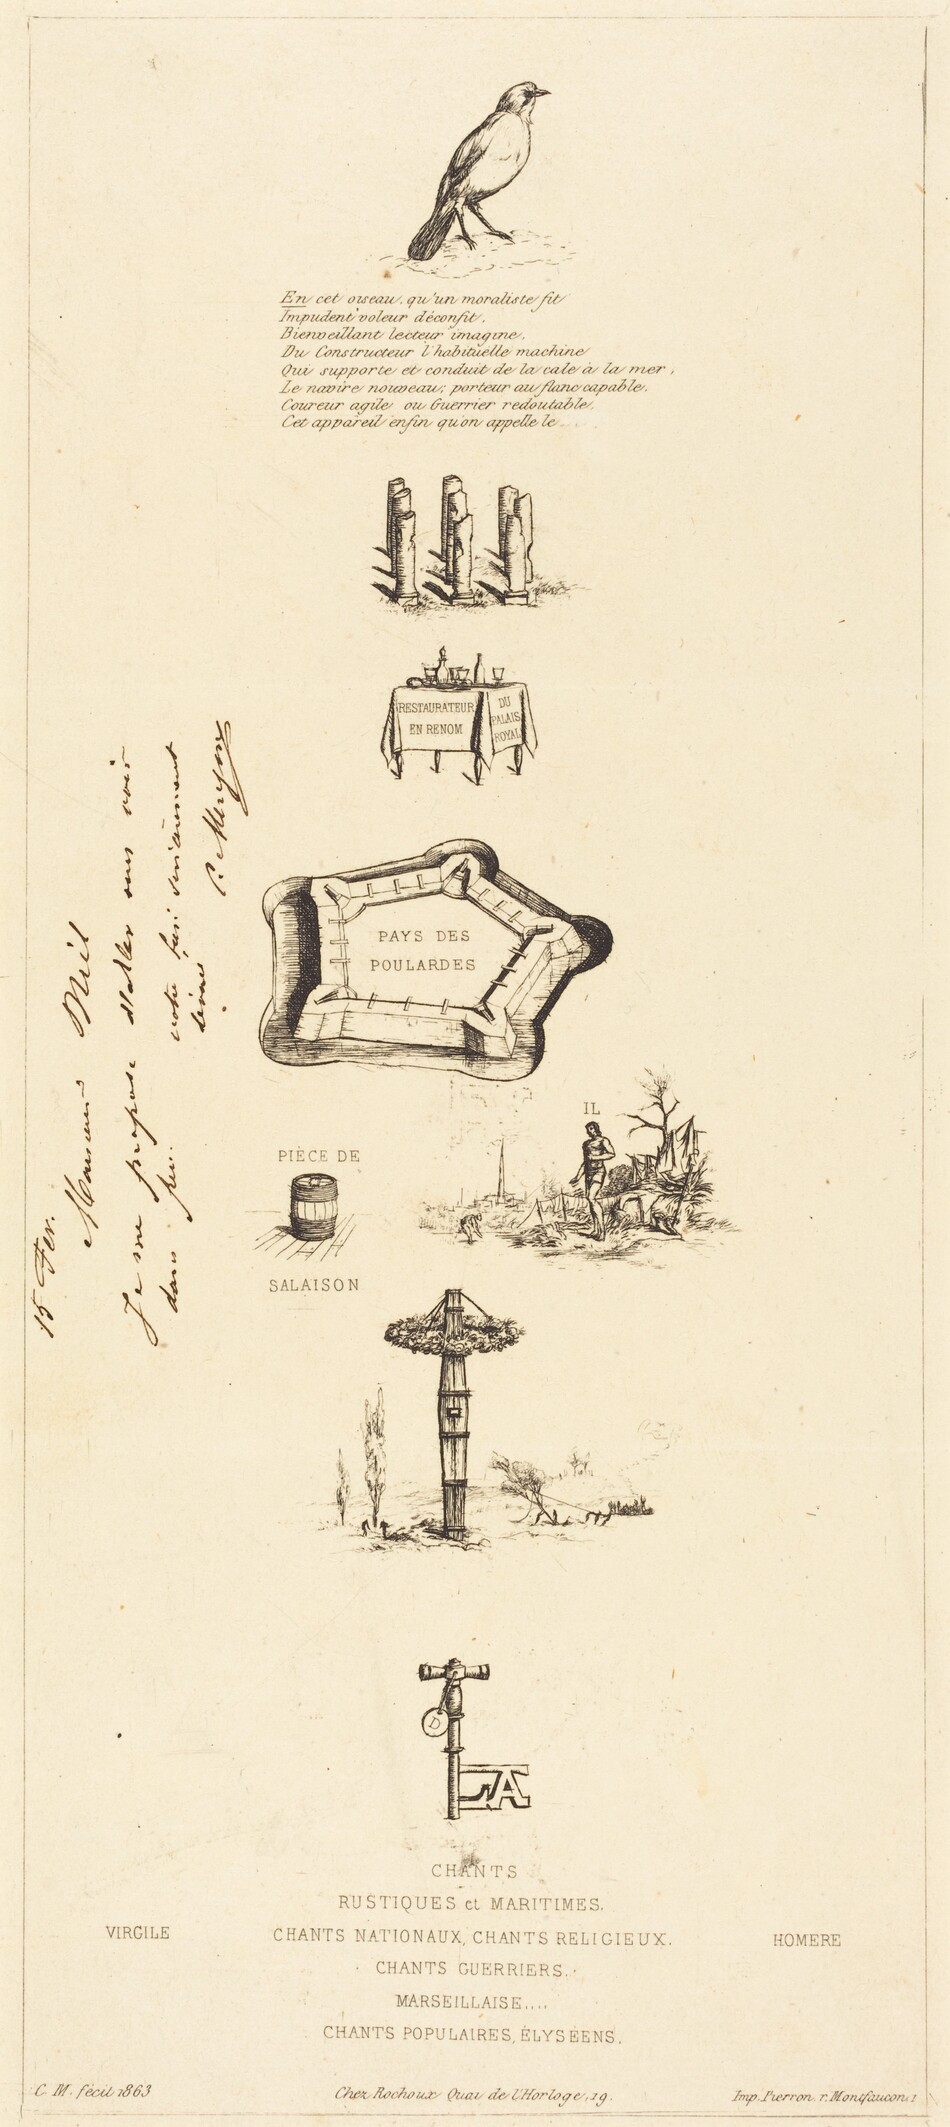 En cet oiseau, qu'un moraliste fit
Impudent voleur déconfit,
Bienveillant lecteur imagine,
Du Constructeur l'habituelle machine
Qui supporte et conduit de la cale à la mer,
Le navire nouveau; porteur au flanc capable,
Coureur agile ou Guerrier redoutable,
Cet appareil enfin qu'on appelle le....
RESTAURATEUR
EN RENOM
DU
PALAIS
ROYAL
PAYS DES
POULARDES
IL
PIÈCE DE
SALAISON
15 Fev.
Monsieur Niel
Je me propose d'aller vous voir
dans peu.
votre bien sincèrement
dévoué
C. Meryon
D
LA
CHANTS
RUSTIQUES et MARITIMES.
VIRGILE
CHANTS NATIONAUX, CHANTS RELIGIEUX.
HOMERE
CHANTS GUERRIERS.
MARSEILLAISE....
CHANTS POPULAIRES, ÉLYSÉENS.
C. M. fecit 1863
Chez Rochoux Quai de l'Horloge, 19.
Imp. Pierron. r. Montfaucon, 1